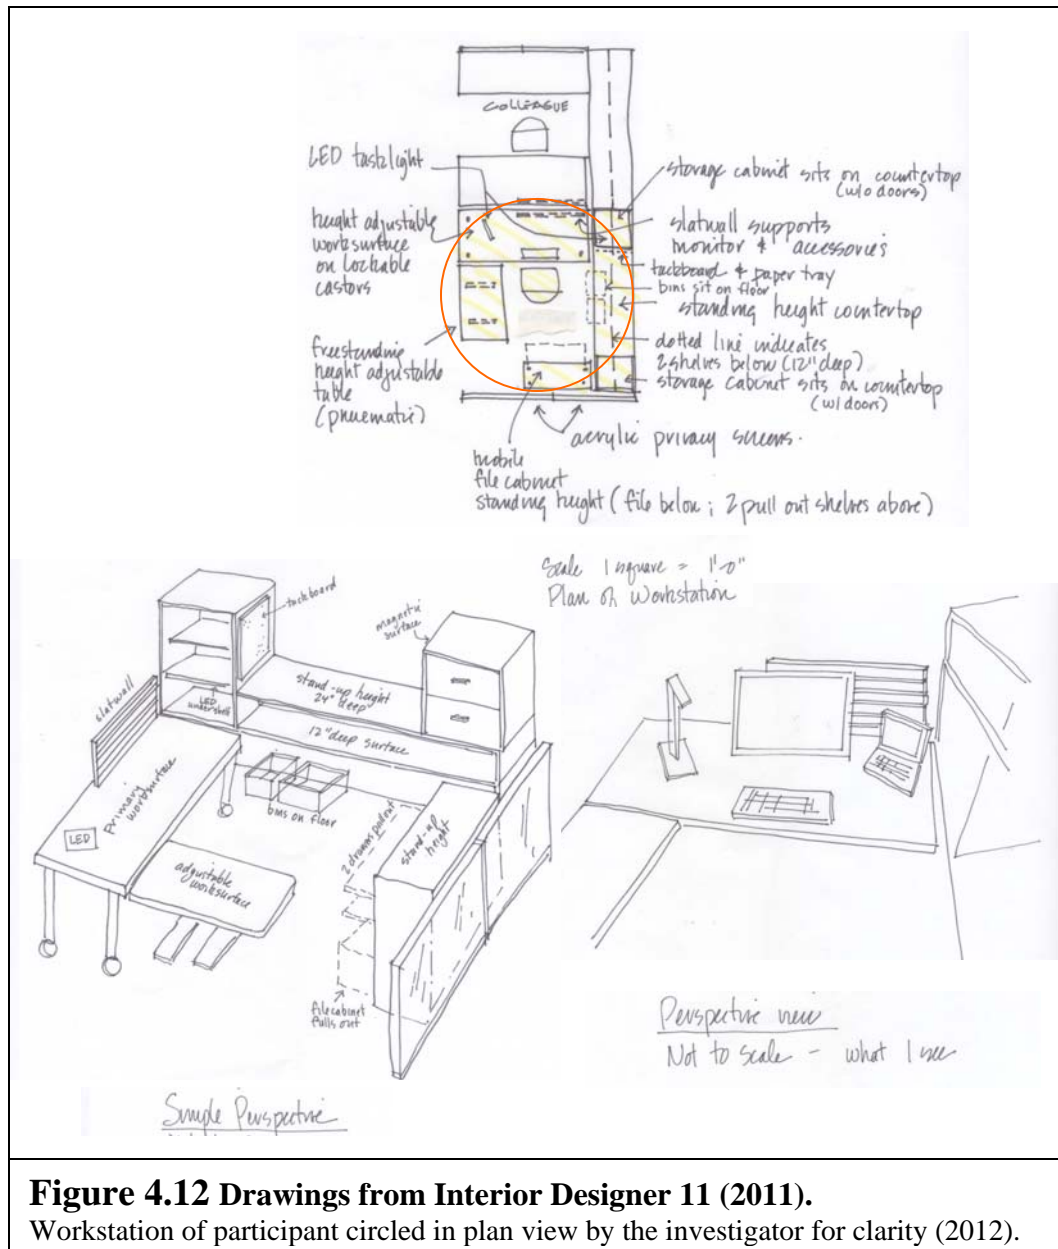 COLLEAGUE
LED tasklight
height adjustable
worksurface
on lockable
castors
freestanding
height adjustable
table
(pnuematic)
storage cabinet sits on countertop
(w/o doors)
slatwall supports
monitor & accessories
tackboard & paper tray
bins sit on floor
standing height countertop
dotted line indicates
2 shelves below (12" deep)
storage cabinet sits on countertop
(w/ doors)
acrylic privacy screens.
mobile
file cabinet
standing height (file below; 2 pull out shelves above)
Scale 1 square = 1'-0"
Plan of Workstation
tackboard
magnetic
surface
slatwall
LED
undershelf
stand-up height
24" deep
12" deep surface
primary
worksurface
LED
bins on floor
adjustable
worksurface
2 drawers pullout
stand-up
height
file cabinet
pulls out
Simple Perspective
Perspective view
Not to scale - what I see
Figure 4.12 Drawings from Interior Designer 11 (2011).
Workstation of participant circled in plan view by the investigator for clarity (2012).